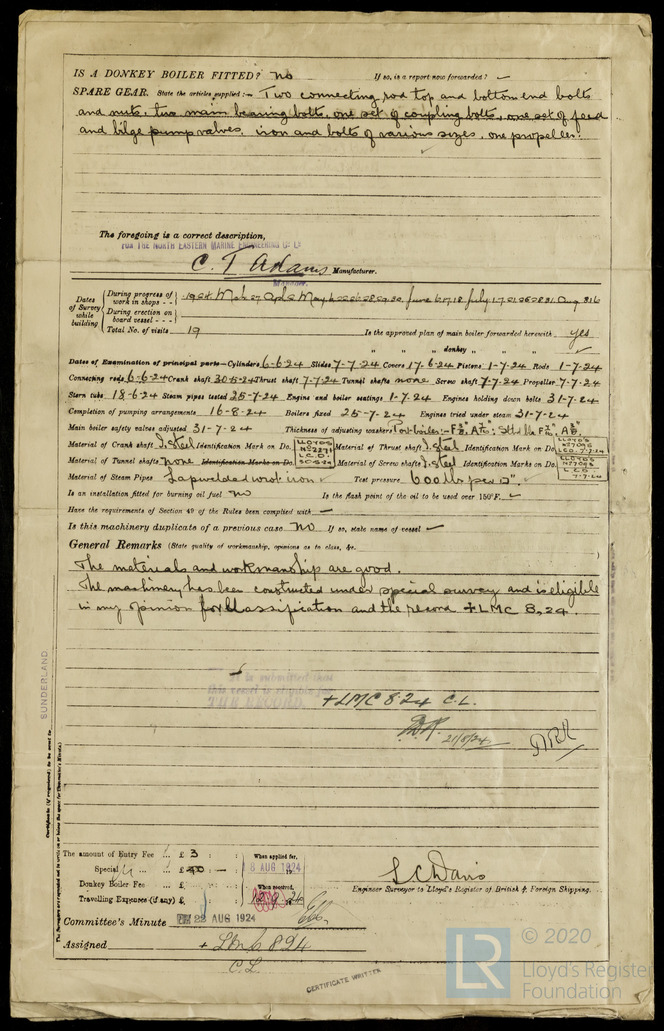 IS A DONKEY BOILER FITTED? No If so, is a report now forwarded? ✓
SPARE GEAR. State the articles supplied:— Two connecting rod top and bottom end bolts
and nuts, two main bearing bolts, one set of coupling bolts, one set of feed
and bilge pump valves, iron and bolts of various sizes, one propeller.
The foregoing is a correct description,
FOR THE NORTH EASTERN MARINE ENGINEERING Co. Ld.
C. T. Adams Manufacturer.
Manager.
Dates of Survey while building
During progress of work in shops - - 1924 Mch 27 Apl 2 May 6 22 26 28 29 30 June 6 17 18 July 1 7 21 25 28 31 Aug 8 16
During erection on board vessel - - -
Total No. of visits 19 Is the approved plan of main boiler forwarded herewith yes
" " " donkey " " ✓
Dates of Examination of principal parts—Cylinders 6-6-24 Slides 7-7-24 Covers 17-6-24 Pistons 1-7-24 Rods 1-7-24
Connecting rods 6-6-24 Crank shaft 30-5-24 Thrust shaft 7-7-24 Tunnel shafts none Screw shaft 7-7-24 Propeller 7-7-24
Stern tube 18-6-24 Steam pipes tested 25-7-24 Engine and boiler seatings 1-7-24 Engines holding down bolts 31-7-24
Completion of pumping arrangements 16-8-24 Boilers fixed 25-7-24 Engines tried under steam 31-7-24
Main boiler safety valves adjusted 31-7-24 Thickness of adjusting washers Port boiler:-
Material of Crank shaft I. Steel Identification Mark on Do. LLOYDS Material of Thrust shaft I. Steel Identification Mark on Do. LLOYDS 7-7-24
Material of Tunnel shafts none Identification Marks on Do. Material of Screw shafts I. Steel Identification Marks on Do. LLOYDS 7-7-24
Material of Steam Pipes Lapwelded wrot iron ✓ Test pressure 600 lbs per □".
Is an installation fitted for burning oil fuel no Is the flash point of the oil to be used over 150°F. ✓
Have the requirements of Section 49 of the Rules been complied with ✓
Is this machinery duplicate of a previous case No If so, state name of vessel ✓
General Remarks (State quality of workmanship, opinions as to class, &c.
The materials and workmanship are good.
The machinery has been constructed under special survey and is eligible
in my opinion for classification and the record +LMC 8,24.
It is submitted that
this vessel is eligible for
THE RECORD. +LMC 8.24 C.L.
21/8/24
SUNDERLAND.
Certificate (if required) to be sent to
The amount of Entry Fee ... £ 3 : : When applied for,
Special ... £ : : 8 AUG 1924
Donkey Boiler Fee ... £ : : When received,
Travelling Expenses (if any) £ : :
Engineer Surveyor to Lloyd's Register of British & Foreign Shipping.
Committee's Minute 22 AUG 1924
Assigned + LMC 8.24
C.L.
CERTIFICATE WRITTEN
LR © 2020
Lloyd's Register
Foundation